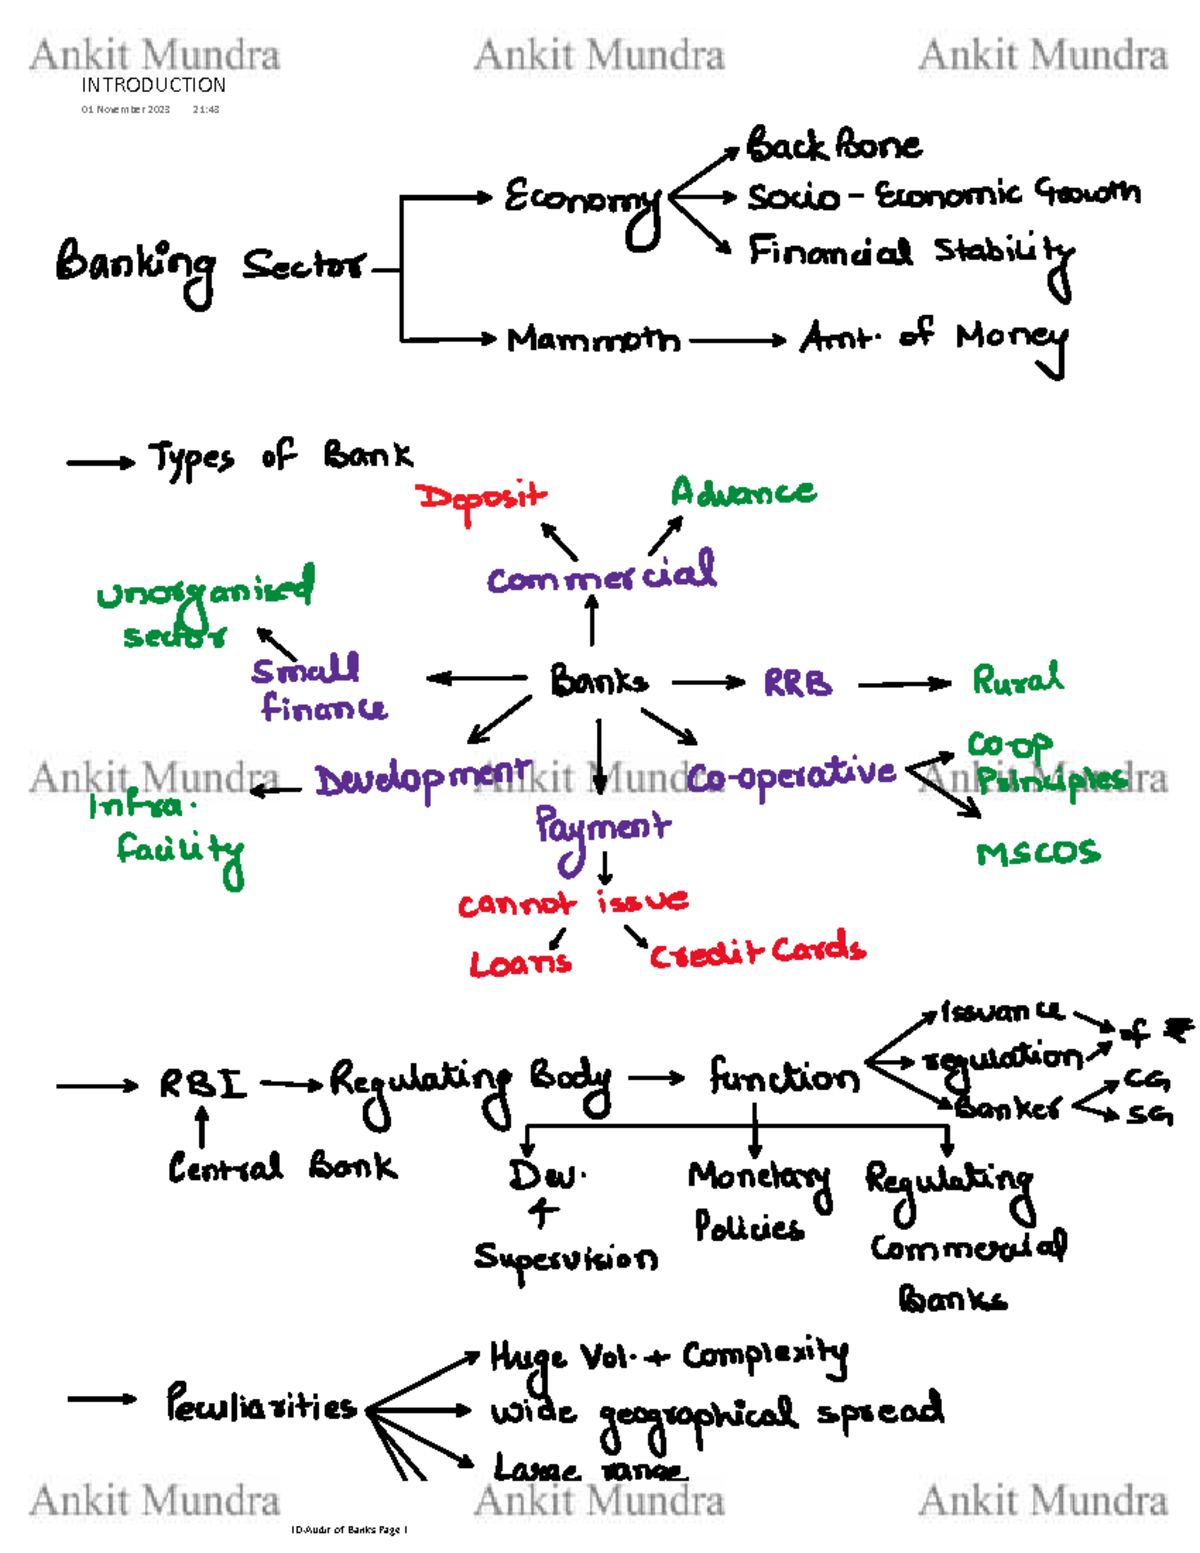 Ankit Mundra Ankit Mundra Ankit Mundra
INTRODUCTION
01 November 2023 21:43
Back Bone
Economy
Socio - Economic Growth
Banking Sector
Financial Stability
Mammoth
Amt. of Money
Types of Bank
Deposit
Advance
Commercial
unorganised
sector
Small
finance
Banks
RRB
Rural
Co-op
Principles
Ankit Mundra Ankit Mundra Ankit Mundra
Development
Co-operative
Infra.
facility
Payment
MSCOS
cannot issue
Loans
Credit Cards
Issuance
of ₹
RBI
Regulating Body
function
regulation
Banker
CG
SG
Central Bank
Dev.
+
Supervision
Monetary
Policies
Regulating
Commercial
Banks
Peculiarities
Huge Vol. + Complexity
wide geographical spread
Large range
Ankit Mundra Ankit Mundra Ankit Mundra
10-Audit of Banks Page 1